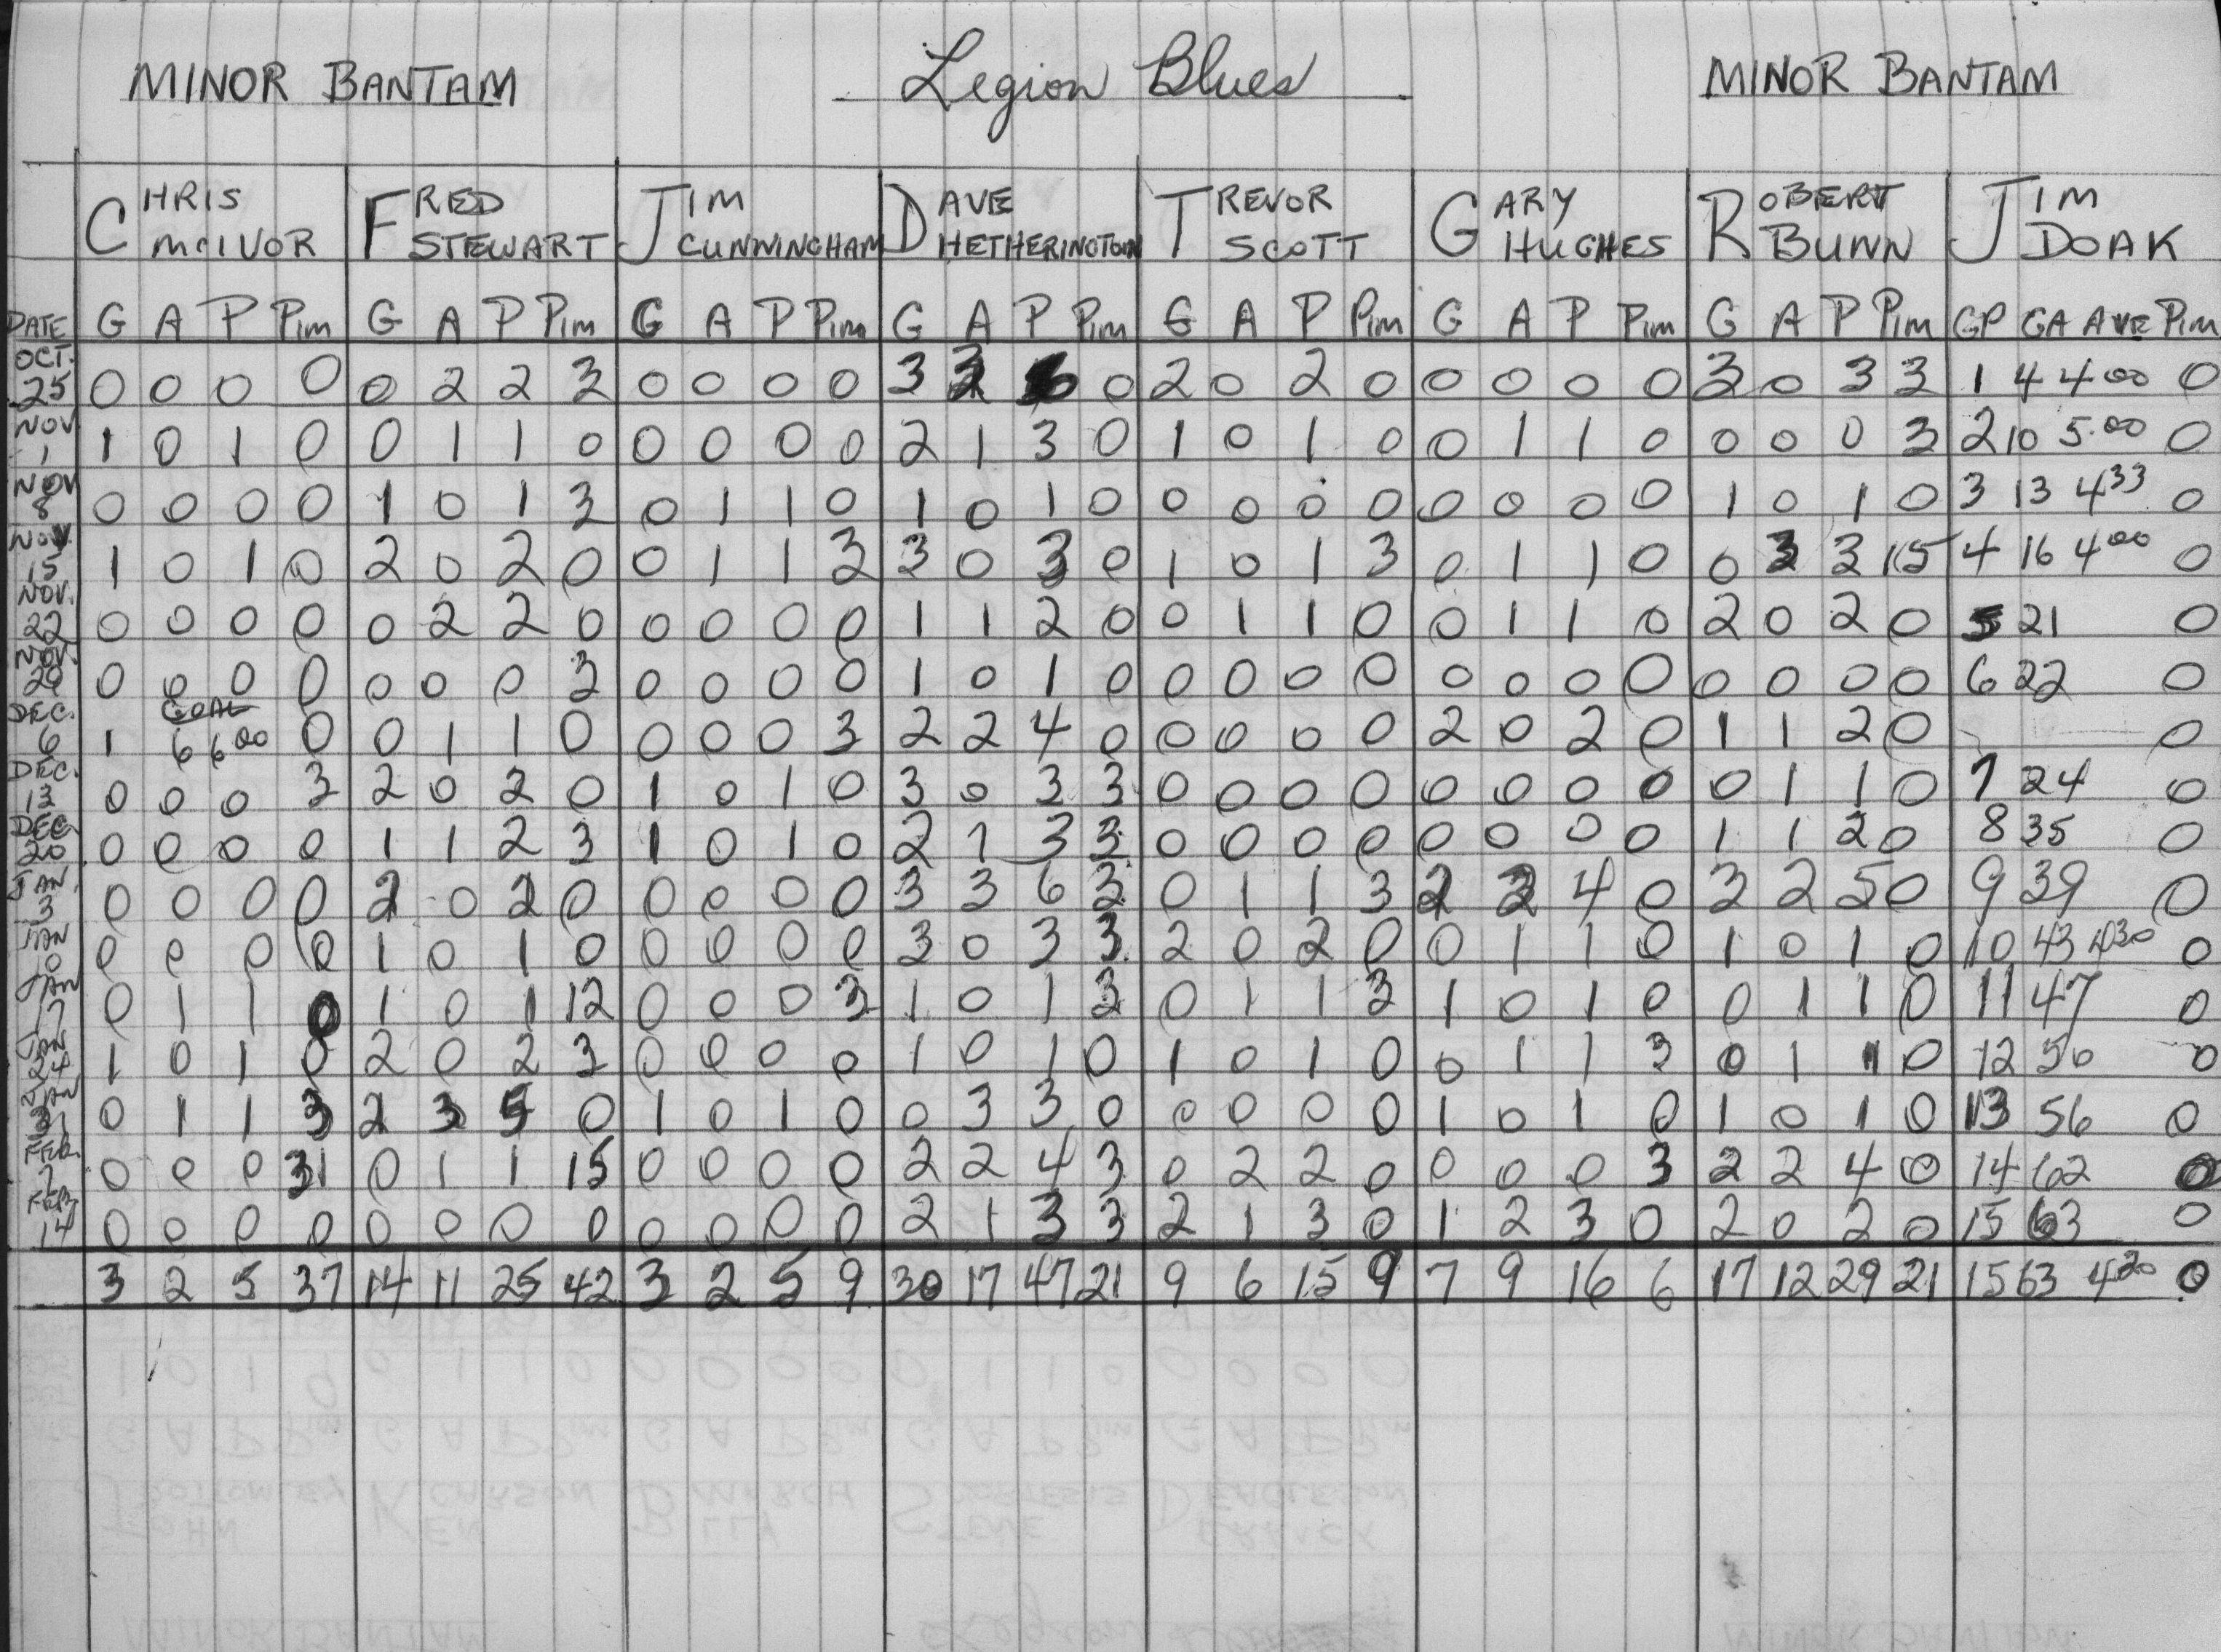 MINOR BANTAM Legion Blues MINOR BANTAM
CHRIS McIVOR FRED STEWART JIM CUNNINGHAM DAVE HETHERINGTON TREVOR SCOTT GARY HUGHES ROBERT BUNN JIM DOAK
DATE G A P Pim G A P Pim G A P Pim G A P Pim G A P Pim G A P Pim G A P Pim GP GA AVE Pim
OCT. 25 0 0 0 0 0 2 2 3 0 0 0 0 3 3 6 0 2 0 2 0 0 0 0 0 3 0 3 3 1 4 4.00 0
NOV 1 1 0 1 0 0 1 1 0 0 0 0 0 2 1 3 0 1 0 1 0 0 1 1 0 0 0 0 3 2 10 5.00 0
NOV 8 0 0 0 0 1 0 1 3 0 1 1 0 1 0 1 0 0 0 0 0 0 0 0 0 1 0 1 0 3 13 4 33 0
NOV. 15 1 0 1 0 2 0 2 0 0 1 1 3 3 0 3 0 1 0 1 3 0 1 1 0 0 3 3 15 4 16 4 00 0
NOV. 22 0 0 0 0 0 2 2 0 0 0 0 0 1 1 2 0 0 1 1 0 0 1 1 0 2 0 2 0 5 21 0
NOV. 29 0 0 0 0 0 0 0 3 0 0 0 0 1 0 1 0 0 0 0 0 0 0 0 0 0 0 0 0 6 22 0
GOAL
DEC. 6 1 6 6 00 0 0 1 1 0 0 0 0 3 2 2 4 0 0 0 0 0 2 0 2 0 1 1 2 0 0
DEC. 13 0 0 0 3 2 0 2 0 1 0 1 0 3 0 3 3 0 0 0 0 0 0 0 0 0 1 1 0 7 24 0
DEC 20 0 0 0 0 1 1 2 3 1 0 1 0 2 1 3 3 0 0 0 0 0 0 0 0 1 1 2 0 8 35 0
JAN. 3 0 0 0 0 2 0 2 0 0 0 0 0 3 3 6 3 0 1 1 3 2 2 4 0 3 2 5 0 9 39 0
JAN 10 0 0 0 0 1 0 1 0 0 0 0 0 3 0 3 3 2 0 2 0 0 1 1 0 1 0 1 0 10 43 4 30 0
JAN 17 0 1 1 0 1 0 1 12 0 0 0 3 1 0 1 3 0 1 1 3 1 0 1 0 0 1 1 0 11 47 0
JAN 24 1 0 1 0 2 0 2 3 0 0 0 0 1 0 1 0 1 0 1 0 0 1 1 3 0 1 1 0 12 50 0
JAN 31 0 1 1 3 2 3 5 0 1 0 1 0 0 3 3 0 0 0 0 0 1 0 1 0 1 0 1 0 13 56 0
FEB. 7 0 0 0 31 0 1 1 15 0 0 0 0 2 2 4 3 0 2 2 0 0 0 0 3 2 2 4 0 14 62 0
FEB 14 0 0 0 0 0 0 0 0 0 0 0 0 2 1 3 3 2 1 3 0 1 2 3 0 2 0 2 0 15 63 0
3 2 5 37 14 11 25 42 3 2 5 9 30 17 47 21 9 6 15 9 7 9 16 6 17 12 29 21 15 63 4 20 0